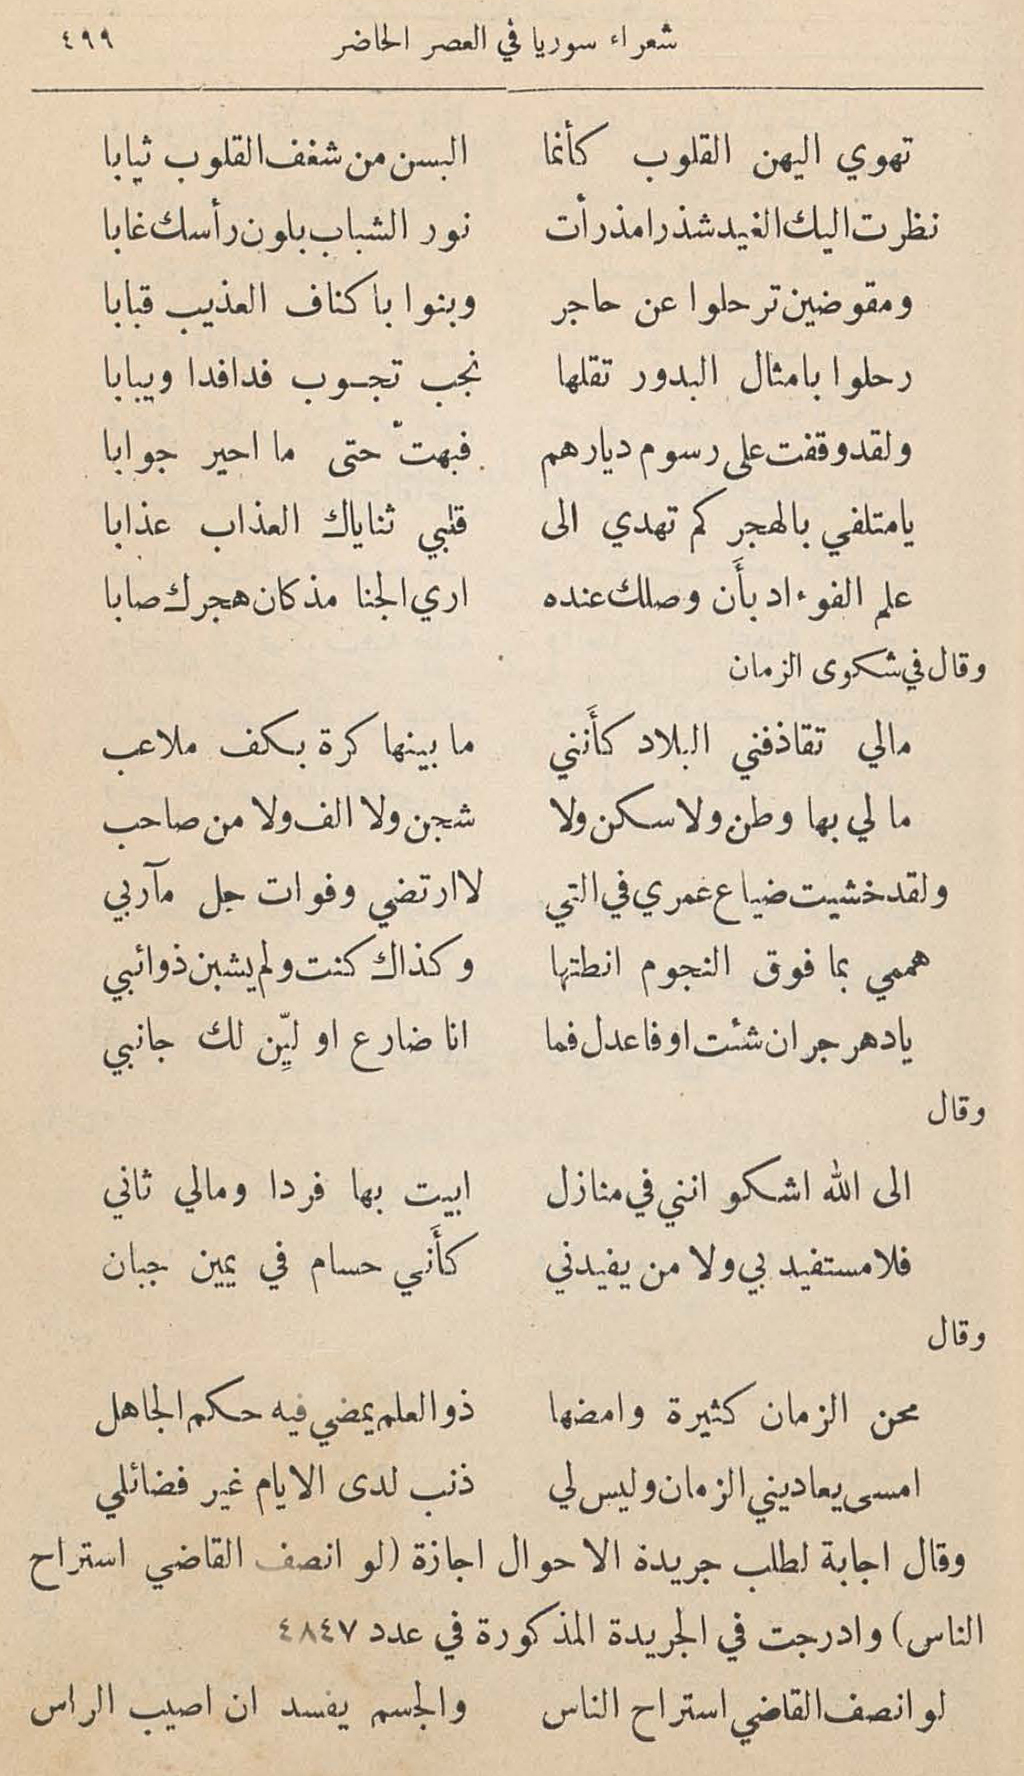 شعراء سوريا في العصر الحاضر ٤٩٩
تهوي اليهن القلوب كأنما البسن من شغف القلوب ثيابا
نظرت اليك الغيد شذرا مذ رأت نور الشباب بلون رأسك غابا
ومقوضين ترحلوا عن حاجر وبنوا باكناف العذيب قبابا
رحلوا بامثال البدور تقلها نجب تجوب فدافدا ويبابا
ولقد وقفت على رسوم ديارهم فبهتّ حتى ما احير جوابا
يا متلفي بالهجر كم تهدي الى قلبي ثناياك العذاب عذابا
علم الفوءاد بأَن وصلك عنده اري الجنا مذ كان هجرك صابا
وقال في شكوى الزمان
مالي تقاذفني البلاد كأَنني ما بينها كرة بكف ملاعب
ما لي بها وطن ولا سكن ولا شجن ولا الف ولا من صاحب
ولقد خشيت ضياع عمري في التي لا ارتضي وفوات جل مآربي
هممي بما فوق النجوم انطتها وكذاك كنت ولم يشبن ذوائبي
يا دهر جر ان شئت او فاعدل فما انا ضارع او ليّن لك جانبي
وقال
الى الله اشكو انني في منازل ابيت بها فردا ومالي ثاني
فلا مستفيد بي ولا من يفيدني كأَني حسام في يمين جبان
وقال
محن الزمان كثيرة وامضها ذو العلم يمضي فيه حكم الجاهل
امسى يعاديني الزمان وليس لي ذنب لدى الايام غير فضائلي
وقال اجابة لطلب جريدة الاحوال اجازة (لو انصف القاضي استراح
الناس) وادرجت في الجريدة المذكورة في عدد ٤٨٤٧
لو انصف القاضي استراح الناس والجسم يفسد ان اصيب الراس